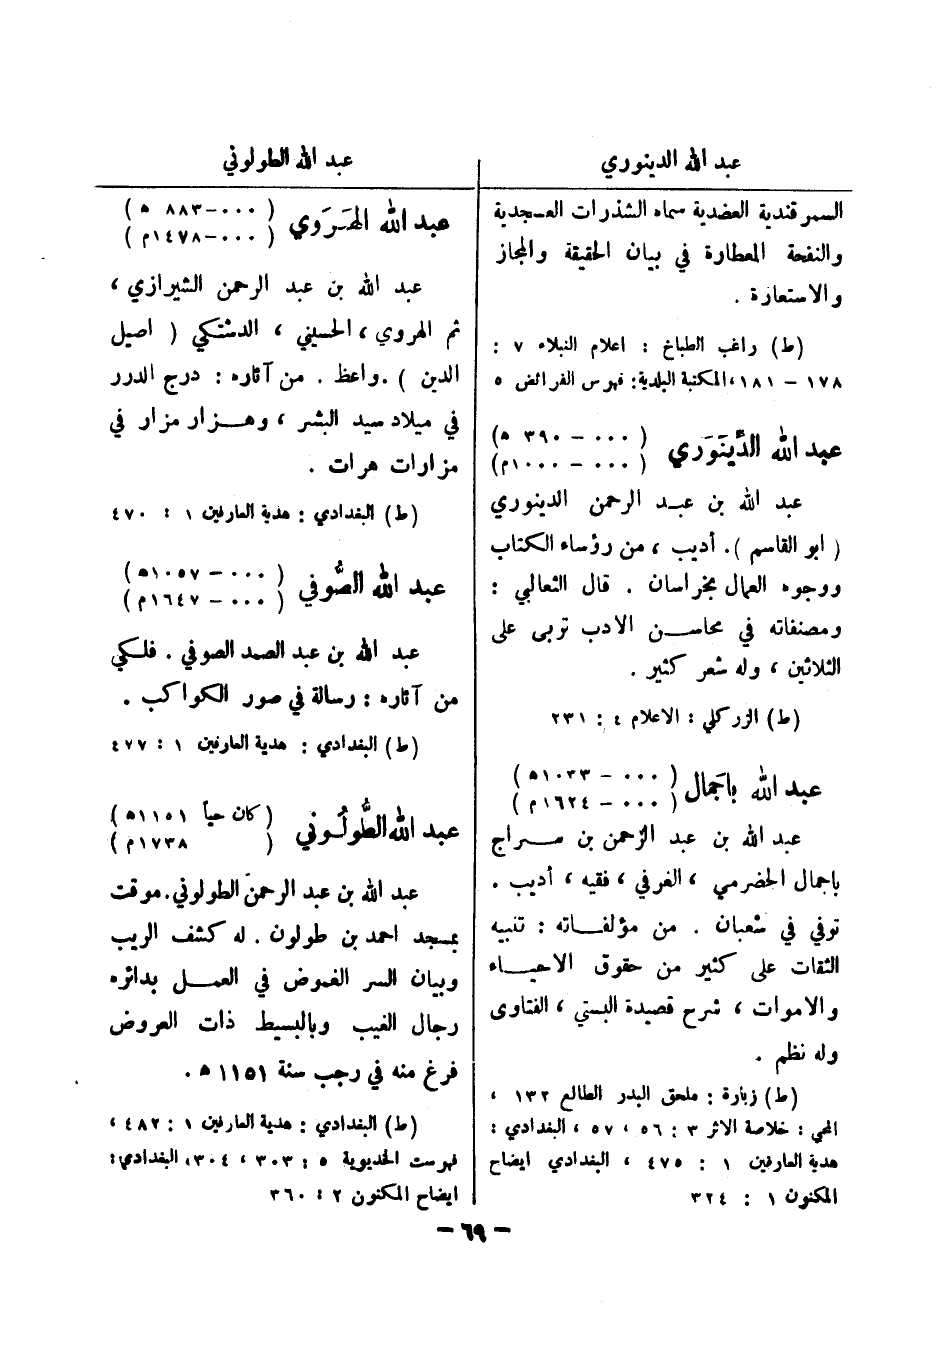 عبد الله الدينوري
السمرقندية العضدية سماه الشذرات العسجدية
والنفحة المعطارة في بيان الحقيقة والمجاز
والاستعارة .
(ط) راغب الطباخ : اعلام النبلاء ٧ :
١٧٨ – ١٨١، المكتبة البلدية: فهرس الفرائض ٥
عبد الله الدِّينَوَري ( ٠٠٠ – ٣٩٠ ه)
( ٠٠٠ – ١٠٠٠م)
عبد الله بن عبد الرحمن الدينوري
( ابو القاسم ). أديب ، من رؤساء الكتاب
ووجوه العمال بخراسان . قال الثعالبي :
ومصنفاته في محاسن الادب تربى على
الثلاثين ، وله شعر كثير .
(ط) الزركلي : الاعلام ٤ : ٢٣١
عبد الله باجَمال ( ٠٠٠ – ١٠٣٣ه )
( ٠٠٠ – ١٦٢٤م )
عبد الله بن عبد الرحمن بن سراج
باجمال الحضرمي ، الغرفي ، فقيه ، أديب .
توفي في شعبان . من مؤلفاته : تنبيه
الثقات على كثير من حقوق الاحياء
والاموات ، شرح قصيدة البستي ، الفتاوى
وله نظم .
(ط) زبارة : ملحق البدر الطالع ١٣٢ ،
المحبي : خلاصة الاثر ٣ : ٥٦ ، ٥٧ ، البغدادي :
هدية العارفين ١ : ٤٧٥ ، البغدادي ايضاح
المكنون ١ : ٣٢٤
عبد الله الطولوني
عبد الله الهَرَوي ( ٠٠٠–٨٨٣ ه )
( ٠٠٠–١٤٧٨م )
عبد الله بن عبد الرحمن الشيرازي ،
ثم الهروي ، الحسيني ، الدشتكي ( اصيل
الدين ). واعظ . من آثاره : درج الدرر
في ميلاد سيد البشر ، وهزار مزار في
مزارات هرات .
(ط) البغدادي : هدية العارفين ١ : ٤٧٠
عبد الله الصُّوفي ( ٠٠٠ – ١٠٥٧ه )
( ٠٠٠ – ١٦٤٧م )
عبد الله بن عبد الصمد الصوفي . فلكي
من آثاره : رسالة في صور الكواكب .
(ط) البغدادي : هدية العارفين ١ : ٤٧٧
عبد الله الطُّولُوني ( كان حياً ١١٥١ه )
( ١٧٣٨م )
عبد الله بن عبد الرحمن الطولوني. موقت
بمسجد احمد بن طولون . له كشف الريب
وبيان السر الغموض في العمل بدائره
رجال الغيب وبالبسيط ذات العروض
فرغ منه في رجب سنة ١١٥١ ه .
(ط) البغدادي : هدية العارفين ١ : ٤٨٢ ،
فهرست الخديوية ٥ : ٣٠٣ ، ٣٠٤، البغدادي :
ايضاح المكنون ٢ : ٣٦٠
– ٦٩ –